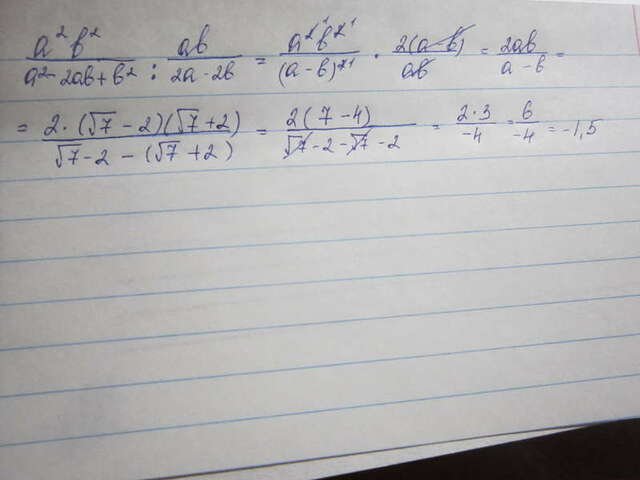 a²b² / a²-2ab+b² : ab / 2a-2b = a²¹b²¹ / (a-b)²¹ · 2(a-b) / ab = 2ab / a-b =
= 2·(√7-2)(√7+2) / √7-2-(√7+2) = 2(7-4) / √7-2-√7-2 = 2·3 / -4 = 6 / -4 = -1,5